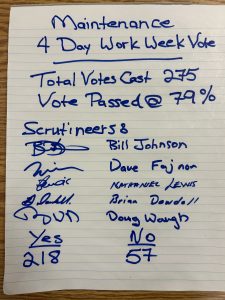 Maintenance
4 Day Work Week Vote
Total Votes Cast 275
Vote Passed @ 79%
Scrutineers:
Bill Johnson
Dave Fajnor
Nathaniel Lewis
Brian Dowdall
Doug Waugh
Yes No
218 57